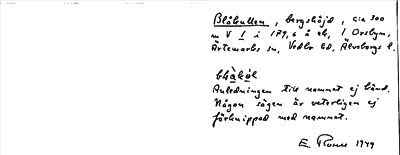 Blåkullen, bergshöjd, c:a 300
m V 1 i 179,6 å ek, 1 Orsbyn,
Ärtemarks sn, Vedbo hd, Älvsborgs l.
blåkúl
Anledningen till namnet ej känd.
Någon sägen är veterligen ej
förknippad med namnet.
E. 1949